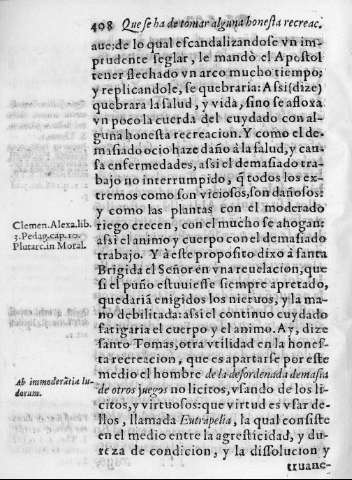 408 Que se ha de tomar alguna honesta recreac.
aue; de lo qual escandalizandose vn im-
prudente seglar, le mandò el Apostol
tener flechado vn arco mucho tiempo;
y replicandole, se quebraria: Assi (dize)
quebrara la salud, y vida, sino se afloxa
vn poco la cuerda del cuydado con al-
guna honesta recreacion. Y como el de-
masiado ocio haze daño à la salud, y cau-
sa enfermedades, assi el demasiado tra-
bajo no interrumpido, q̃ todos los ex-
tremos como son viciosos, son dañosos:
y como las plantas con el moderado
riego crecen, con el mucho se ahogan:
assi el animo y cuerpo con el demasiado
trabajo. Y à este proposito dixo à santa
Brigida el Señor en vna reuelacion, que
si el puño estuuiesse siempre apretado,
quedariã enigidos los nieruos, y la ma-
no debilitada: assi el continuo cuydado
fatigaria el cuerpo y el animo. Ay, dize
santo Tomas, otra vtilidad en la hones-
ta recreacion, que es apartarse por este
medio el hombre de la desordenada demasia
de otros juegos no licitos, vsando de los li-
citos, y virtuosos: que virtud es vsar de-
llos, llamada Eutrapelia, la qual consiste
en el medio entre la agresticidad, y du-
reza de condicion, y la dissolucion y
truane-
Clemen. Alexa. lib.
3. Pedag. cap. 10.
Plutarc. in Moral.
Ab immoderãtia lu-
dorum.